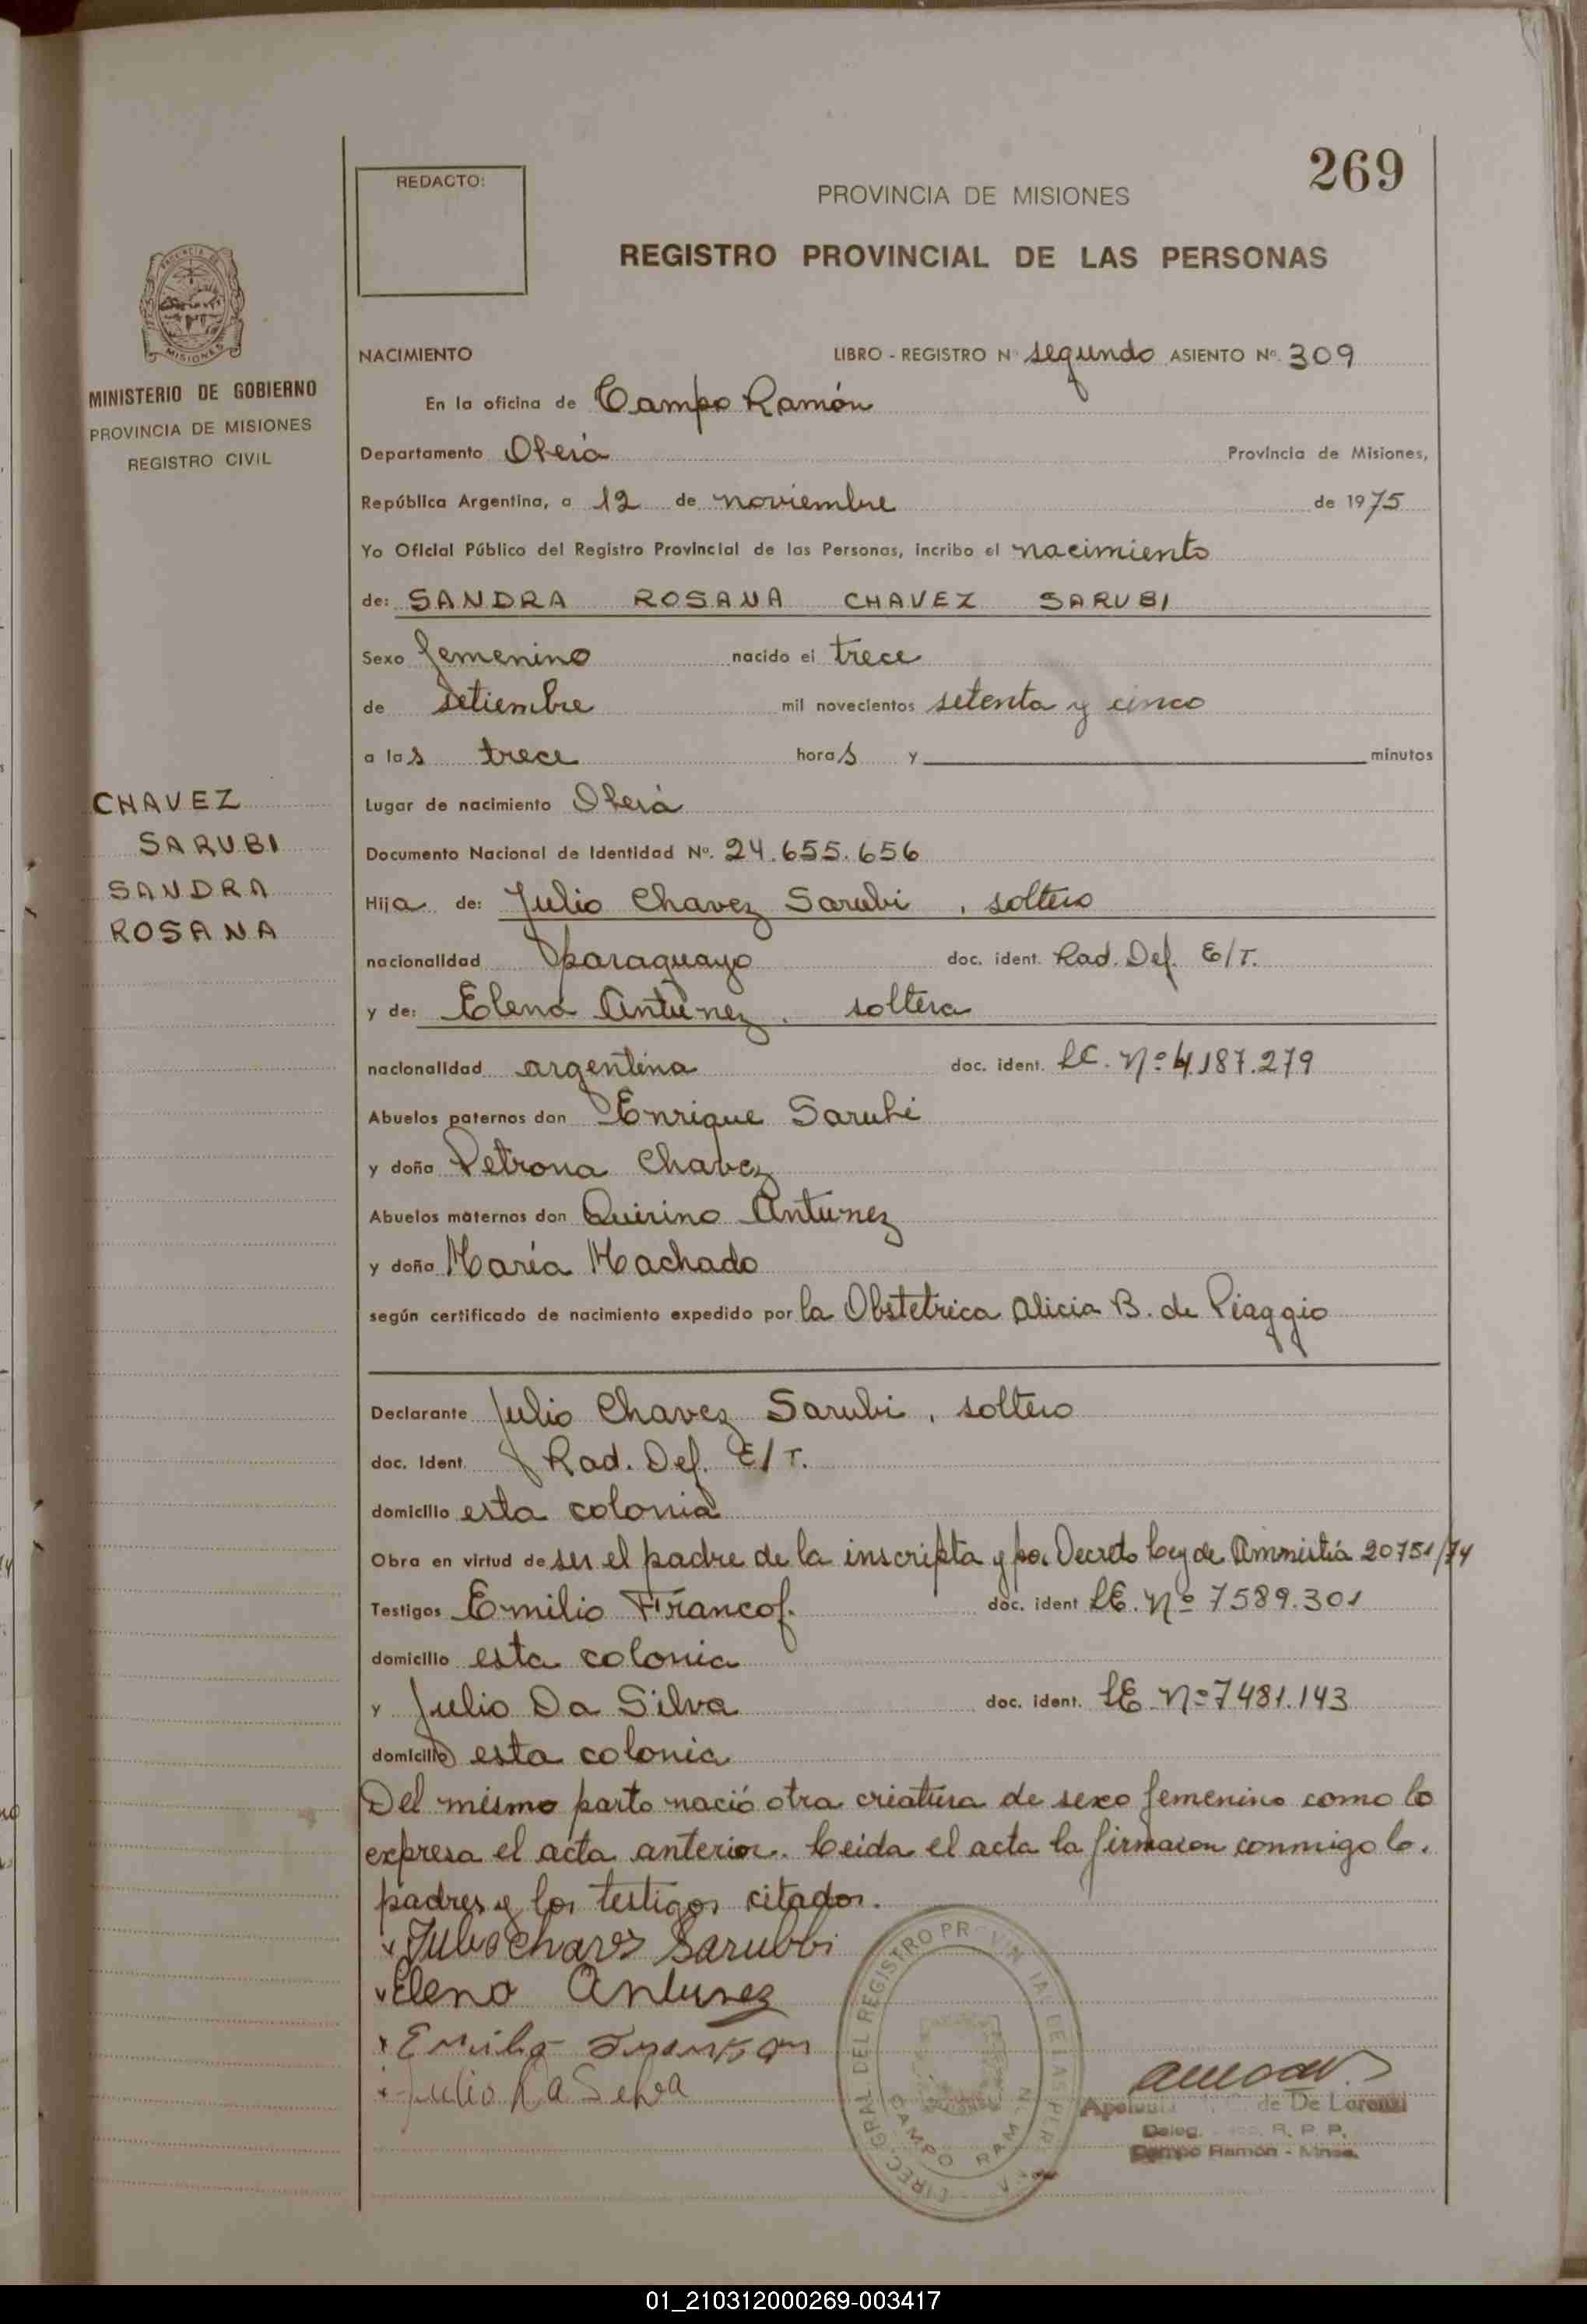 269
REDACTO:
PROVINCIA DE MISIONES
REGISTRO PROVINCIAL DE LAS PERSONAS
MISIONES
MINISTERIO DE GOBIERNO
PROVINCIA DE MISIONES
REGISTRO CIVIL
CHAVEZ
SARUBI
SANDRA
ROSANA
NACIMIENTO LIBRO - REGISTRO Nº segundo ASIENTO Nº. 309
En la oficina de Campo Ramón
Departamento Oberá Provincia de Misiones,
República Argentina, a 12 de noviembre de 1975
Yo Oficial Público del Registro Provincial de las Personas, incribo el nacimiento
de: SANDRA ROSANA CHAVEZ SARUBI
Sexo femenino nacido el trece
de setiembre mil novecientos setenta y cinco
a las trece horas y minutos
Lugar de nacimiento Oberá
Documento Nacional de Identidad Nº. 24.655.656
Hija de: Julio Chavez Sarubi, soltero
nacionalidad paraguayo doc. ident. Rad. Def. E/T.
y de: Elena Antunez. soltera
nacionalidad argentina doc. ident. LC. Nº 4.187.279
Abuelos paternos don Enrique Sarubi
y doña Petrona Chavez
Abuelos maternos don Quirino Antunez
y doña María Machado
según certificado de nacimiento expedido por la Obstetrica Alicia B. de Piaggio
Declarante Julio Chavez Sarubi, soltero
doc. Ident. Rad. Def. E/T.
domicilio esta colonia
Obra en virtud de ser el padre de la inscripta y por Decreto Ley de Ammistia 20751/74
Testigos Emilio Francof. doc. ident LE. Nº 7589.301
domicilio esta colonia
y Julio Da Silva doc. ident. LE Nº 7481.143
domicilio esta colonia
Del mismo parto nació otra criatura de sexo femenino como lo
expresa el acta anterior. Leida el acta la firmaron conmigo lo.
padres y los testigos citados.
Julio Chavez Sarubbi
Elena Antunez
Emilio
Julio Da Selva
DIREC. GRAL DEL REGISTRO PROVINCIAL DE LAS PERS
CAMPO RAMON
de De Lorenzi
Deleg. R. P. P.
Campo Ramón - Mnes.
01_210312000269-003417